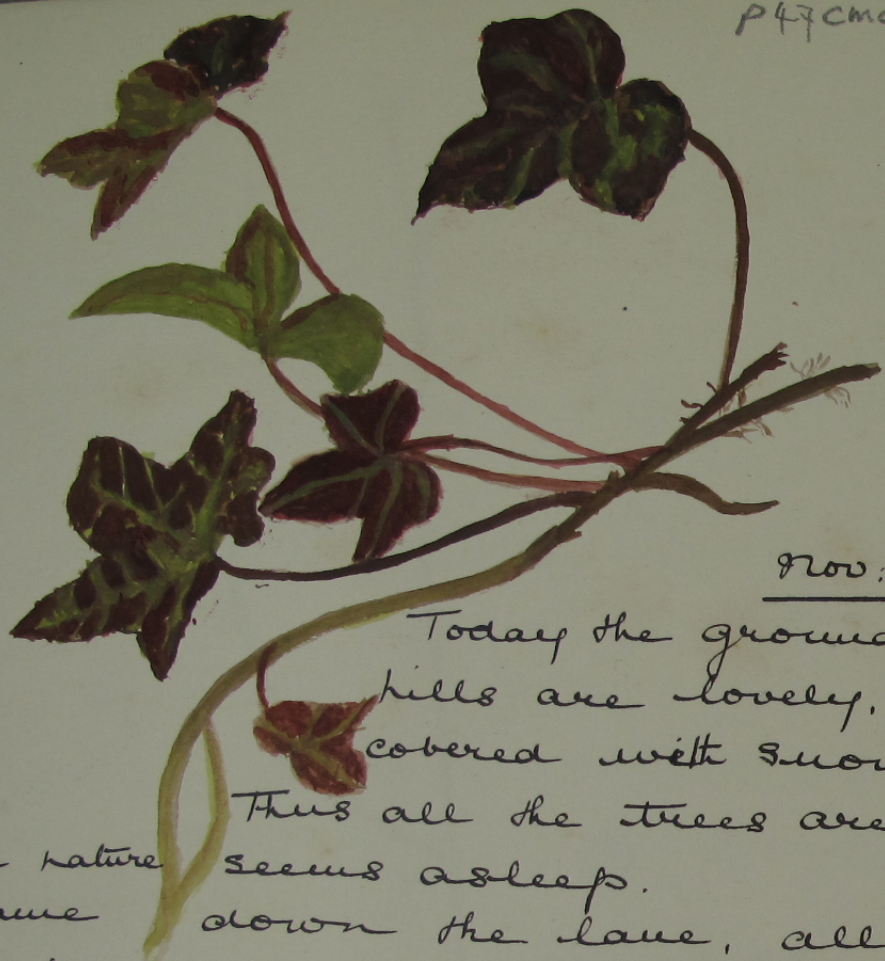 P47 cm
Nov:
Today the ground
hills are lovely,
covered with snow
Thus all the trees are
nature seems asleep.
down the lane, all